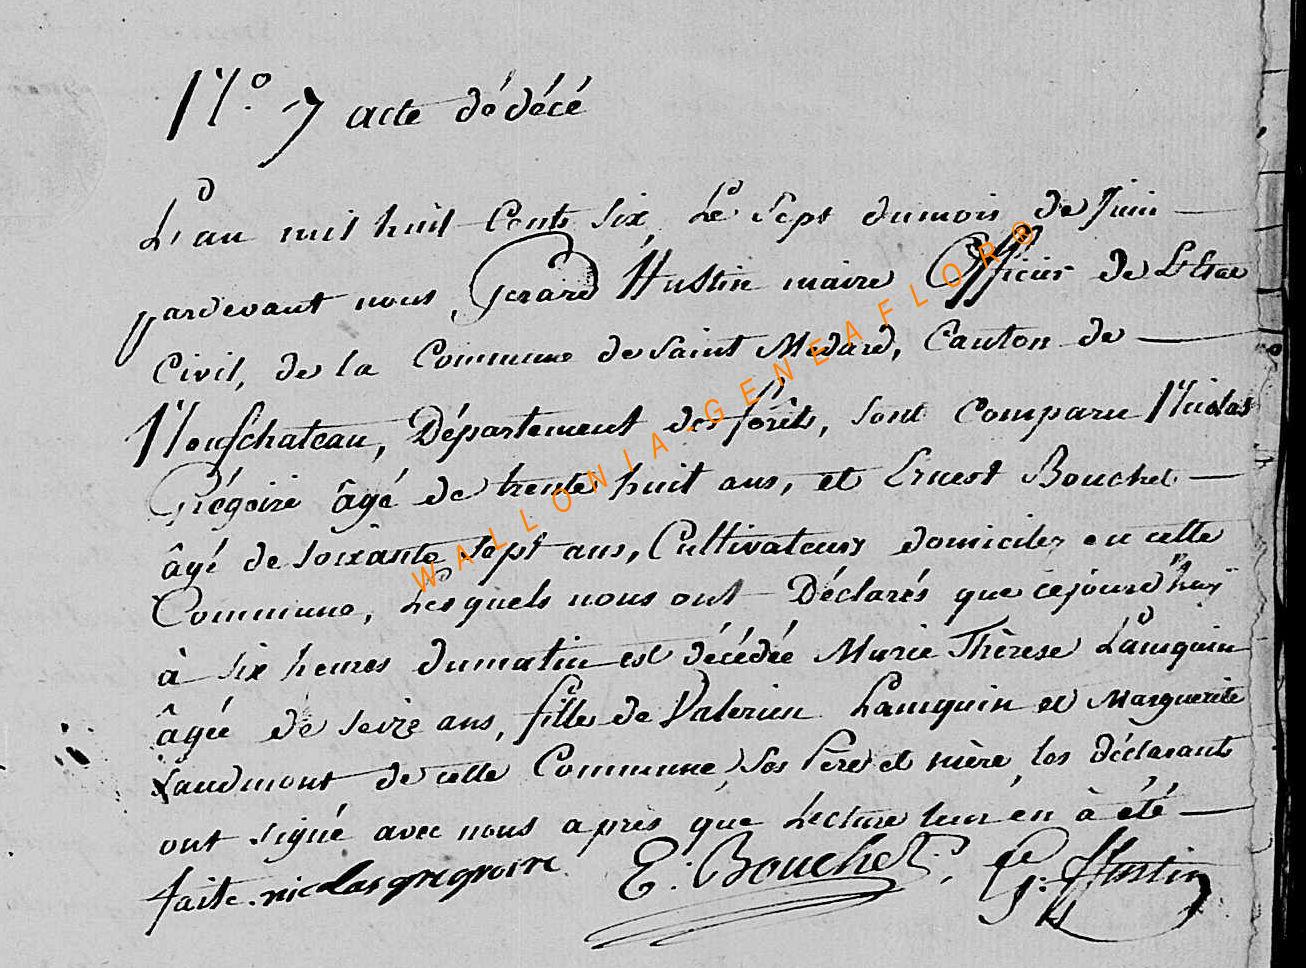 N.º 7 acte dé décé
L'an mil huit Cents six, Le Sept du mois de Juin —
pardevant nous Gerard Hustin maire Officier de L'Etat
Civil, de la Commune de Saint Medard, Canton de —
Neufchateau, Département des forêts, sont comparu Nicolas
Grégoire âgé de trente huit ans, et Ernest Bouchet —
âgé de soixante sept ans, Cultivateurs domicilez en cette
Commune, Lesquels nous ont Déclarés que cejourd'huy
à six heures du matin est décédée Marie Thérese Lamquin
âgée de seize ans, fille de Valerien Lamquin et Marguerite
Laudmont de cette Commune, Ses Père et mère, les déclarants
ont signé avec nous après que Lecture leur en à été —
faite. nicolas gregroire E. Bouchet. G. Hustin
WALLONIA-GENEAFLOR®